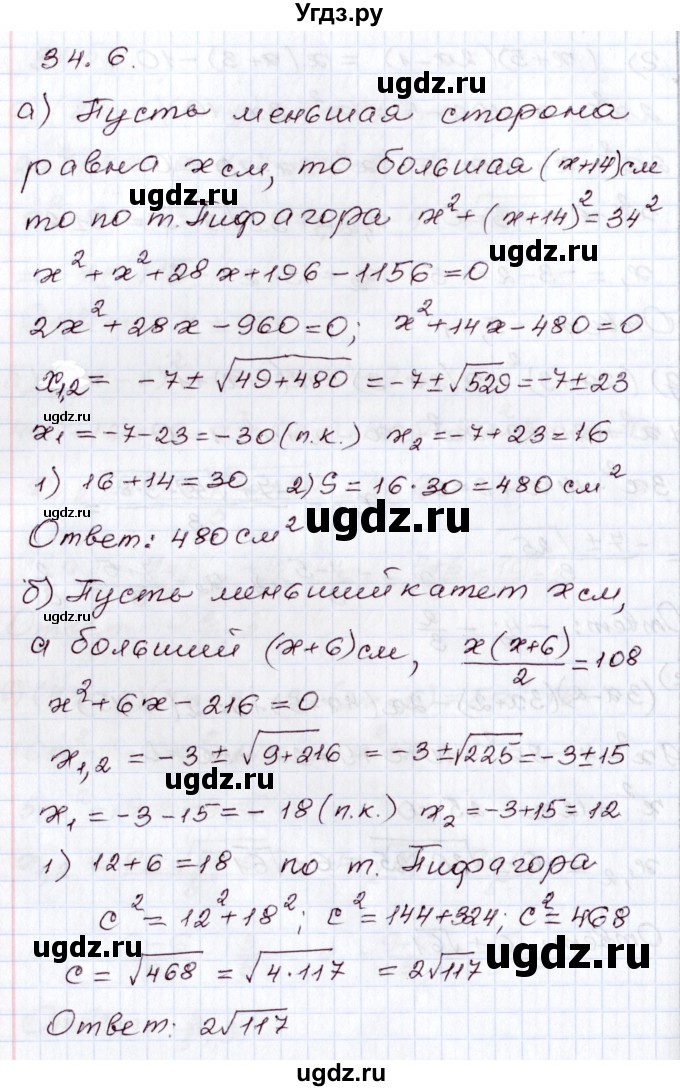 Угдз.ру
34.6.
ugdz.ru
а) Пусть меньшая сторона
равна x см, то большая (x+14) см
ugdz.ru
ugdz.ru
то по т. Пифагора x²+(x+14)²=34²
x²+x²+28x+196-1156=0
2x²+28x-960=0; x²+14x-480=0
x₁,₂= -7±√49+480 =-7±√529=-7±23
ugdz.ru
x₁=-7-23=-30(п.к.) x₂=-7+23=16
ugdz.ru
1) 16+14=30 2) S=16·30=480 см²
ugdz.ru
Ответ: 480 см²
б) Пусть меньший катет x см,
ugdz.ru
а больший (x+6) см, x(x+6)/2=108
ugdz.ru
x²+6x-216=0
x₁,₂ = -3±√9+216 =-3±√225=-3±15
ugdz.ru
x₁=-3-15=-18(п.к.) x₂=-3+15=12
1) 12+6=18 по т. Пифагора
c²=12²+18²; c²=144+324; c²=468
ugdz.ru
ugdz.ru
c=√468 =√4·117 =2√117
Ответ: 2√117
ugdz.ru